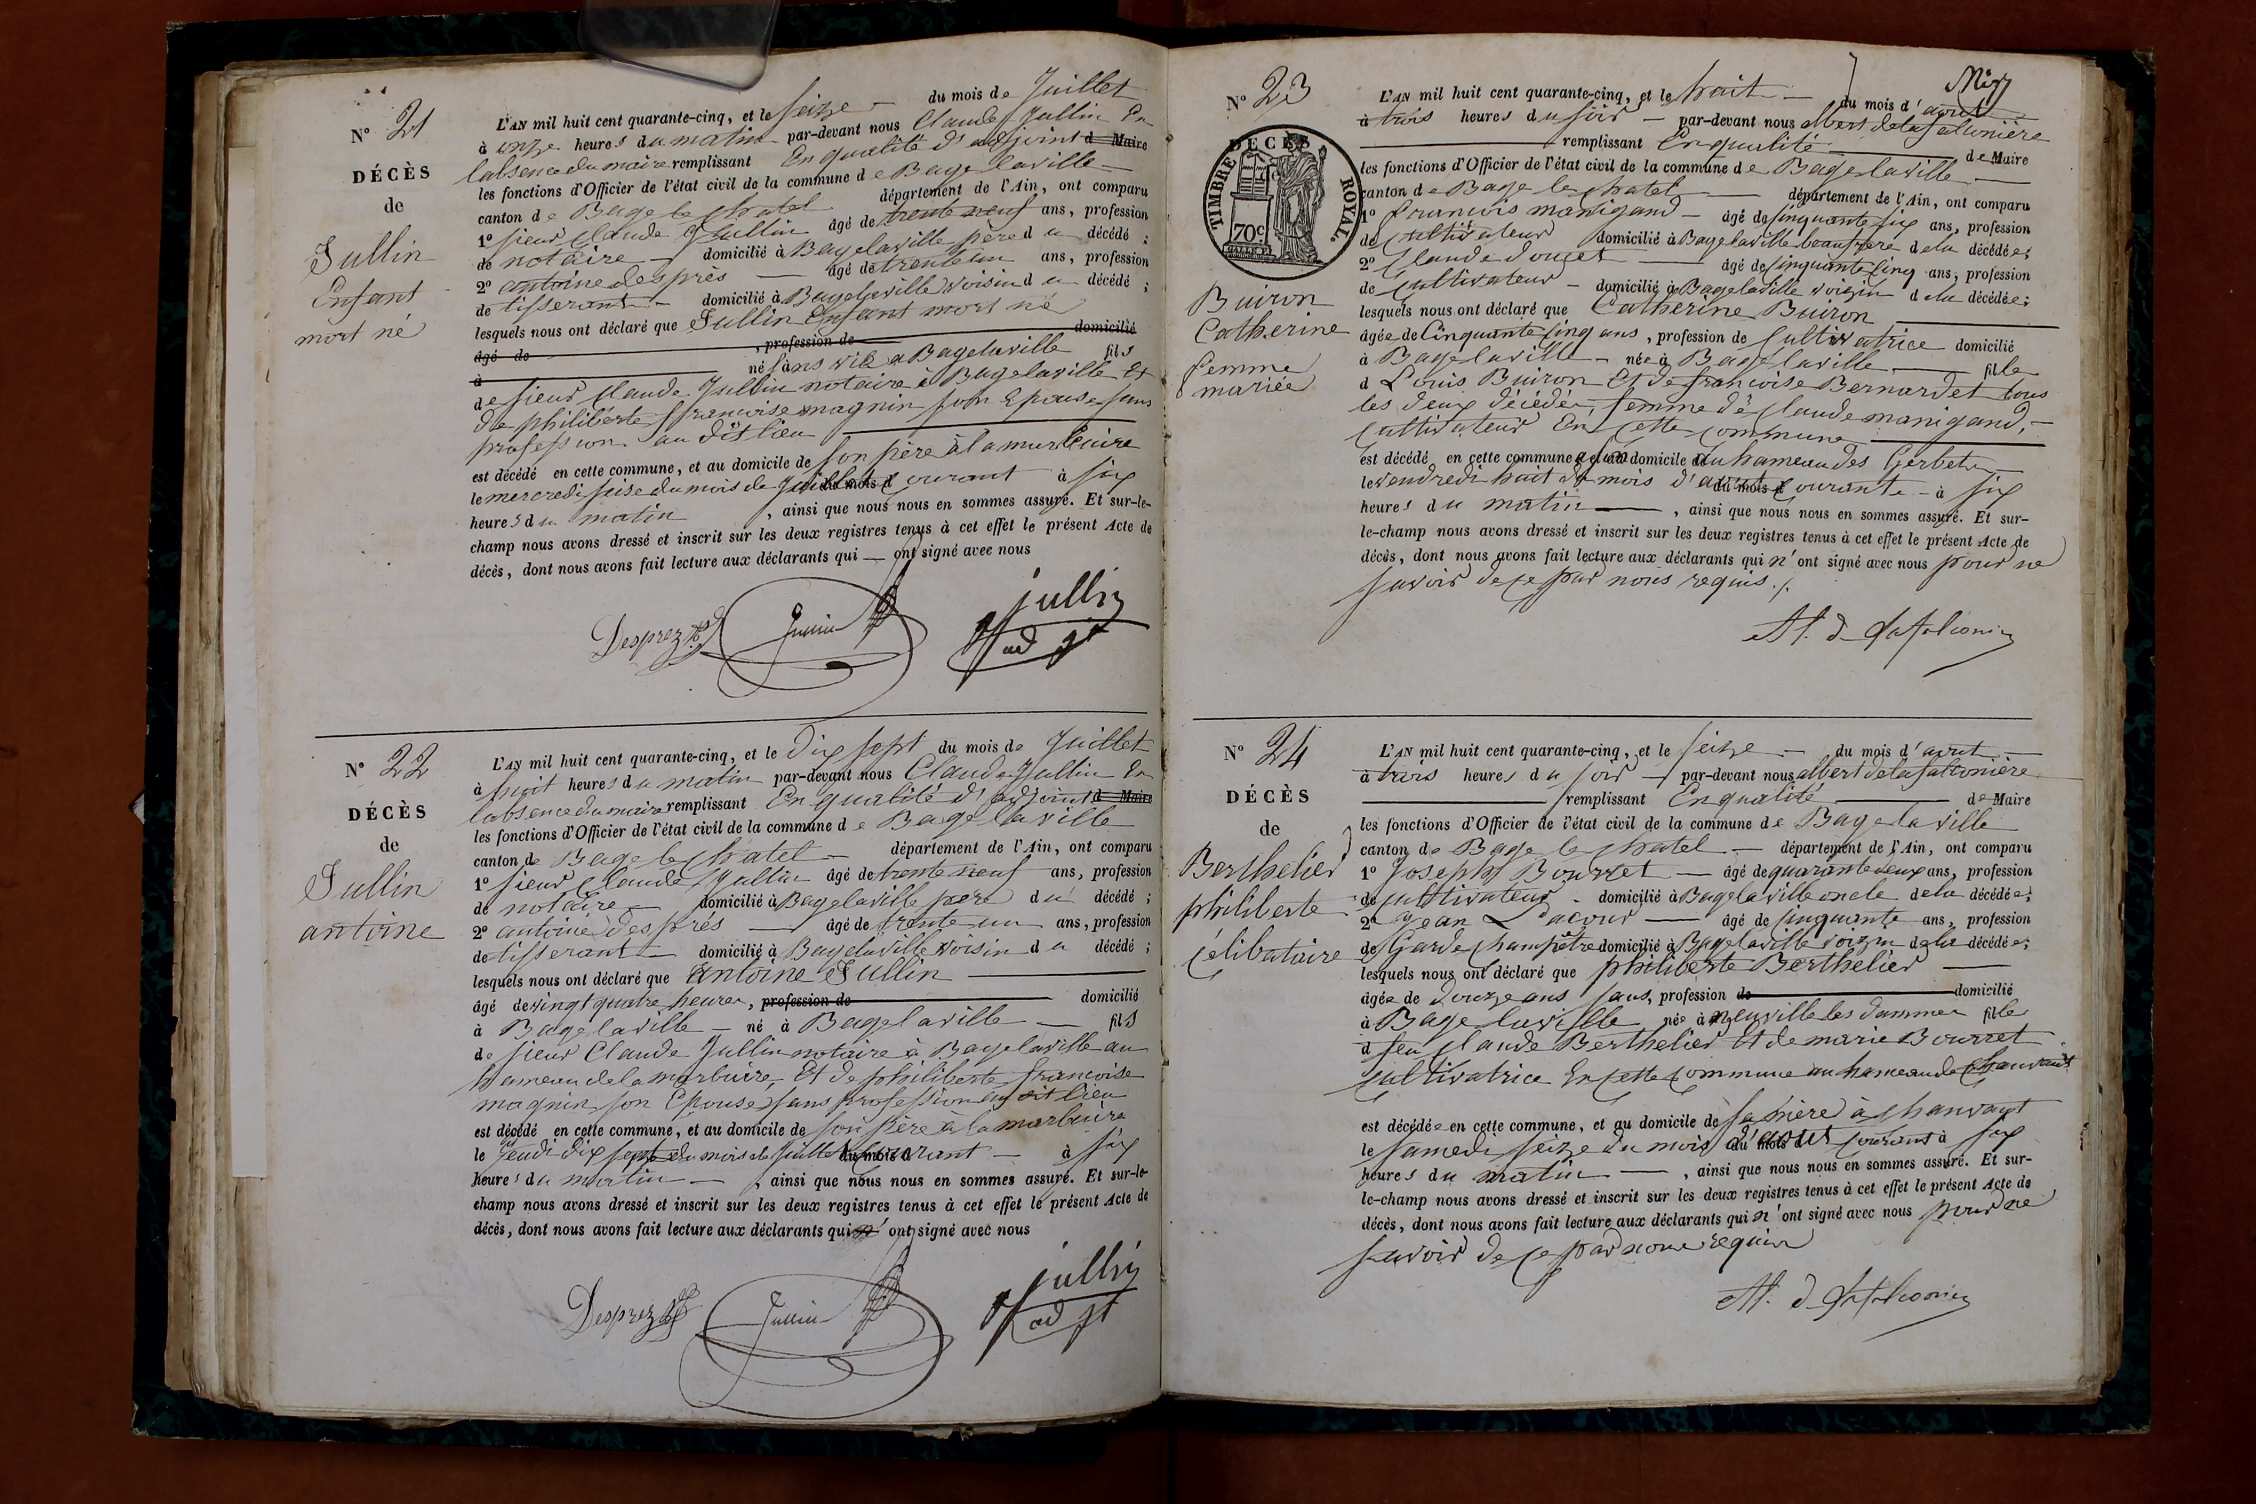 N° 21
DÉCÈS
de
Jullin
Enfant
mort né
L'AN mil huit cent quarante-cinq, et le seize du mois de Juillet
à onze heures du matin par-devant nous Claude Jullin En
labsence du maire remplissant En qualité d'adjoint d Maire
les fonctions d'Officier de l'état civil de la commune de Bage laville
canton de Bage le chatel département de l'Ain, ont comparu
1° sieur Claude Jullin âgé de trente neuf ans, profession
de notaire domicilié à Bagelaville père du décédé ;
2° antoine desprès âgé de trente un ans, profession
de tisserant domicilié à Bagelaville voisin du décédé ;
lesquels nous ont déclaré que Jullin Enfant mort né
âgé de , profession de domicilié
à né sans vie a Bagelaville fils
de sieur Claude Jullin notaire à Bagelaville Et
de philiberte francoise magnin son Epouse sans
profession au dit lieu
est décédé en cette commune, et au domicile de son père à la murbuire
le mercredi seise du mois de Juillet du mois d courant à six
heures du matin , ainsi que nous nous en sommes assuré. Et sur-le-
champ nous avons dressé et inscrit sur les deux registres tenus à cet effet le présent Acte de
décès, dont nous avons fait lecture aux déclarants qui ont signé avec nous
Desprez Jullin jullin
adjt
N° 22
DÉCÈS
de
Jullin
antoine
L'AN mil huit cent quarante-cinq, et le dix sept du mois de Juillet
à huit heures du matin par-devant nous Claude Jullin En
labsence du maire remplissant En qualité d'adjoint d Maire
les fonctions d'Officier de l'état civil de la commune de Bage laville
canton de Bage le chatel département de l'Ain, ont comparu
1° sieur Claude Jullin âgé de trente neuf ans, profession
de notaire domicilié à Bagelaville père du décédé ;
2° antoine després âgé de trente un ans, profession
de tisserant domicilié à Bagelaville voisin du décédé ;
lesquels nous ont déclaré que antoine Jullin
âgé de vingt quatre heures, profession de domicilié
à Bagelaville né à Bagelaville fils
de sieur Claude Jullin notaire à Bagelaville au
hameau de la marbuire Et de philiberte francoise
magnin son Epouse sans profession au dit lieu
est décédé en cette commune, et au domicile de son père à la marbuire
le jeudi dix sept du mois de Juillet du mois d courant à six
heures du matin , ainsi que nous nous en sommes assuré. Et sur-le-
champ nous avons dressé et inscrit sur les deux registres tenus à cet effet le présent Acte de
décès, dont nous avons fait lecture aux déclarants qui n' ont signé avec nous
Desprez Jullin jullin
adjt
N° 23
DÉCÈS
TIMBRE ROYAL.
70c
Buiron
Catherine
femme
mariée
L'AN mil huit cent quarante-cinq, et le huit du mois d'aout
à trois heures du soir par-devant nous albert delafalconière
remplissant En qualité de Maire
les fonctions d'Officier de l'état civil de la commune de Bage laville
canton de Bage le chatel département de l'Ain, ont comparu
1° francois manigand âgé de cinquante six ans, profession
de cultivateur domicilié à Bagelaville beaufrere dela décédée ;
2° Claude doucet âgé de cinquante cinq ans, profession
de cultivateur domicilié à Bagelaville voizin dela décédée ;
lesquels nous ont déclaré que Catherine Buiron
âgée de Cinquante cinq ans, profession de cultivatrice domicilié
à Bagelaville née à Bagelaville fille
d Louis Buiron Et de francoise Bernardet tous
les deux décédés, femme de Claude manigand,
cultivateur En cette commune
est décédé en cette commune et au domicile de au hameau des Gerbets
le vendredi huit du mois d'aout du mois d courante à six
heures du matin , ainsi que nous nous en sommes assuré. Et sur-
le-champ nous avons dressé et inscrit sur les deux registres tenus à cet effet le présent Acte de
décès, dont nous avons fait lecture aux déclarants qui n'ont signé avec nous pour ne
savoir de ce par nous requis.
N° 24
DÉCÈS
de
Berthelier
philiberte
célibataire
L'AN mil huit cent quarante-cinq, et le seize du mois d'aout
à trois heures du soir par-devant nous albert de la falconière
remplissant En qualité de Maire
les fonctions d'Officier de l'état civil de la commune de Bage la ville
canton de Bage le chatel département de l'Ain, ont comparu
1° Joseph Bourret âgé de quarante deux ans, profession
de cultivateur domicilié à Bagelaville oncle dela décédée ;
2° Jean Lacour âgé de cinquante ans, profession
de Garde champêtre domicilié à Bagelaville voizin dela décédée ;
lesquels nous ont déclaré que philiberte Berthelier
âgée de douze ans sans, profession de domicilié
à Bage laville née à neuville les dammes fille
d feu Claude Berthelier Et de marie Bourret
cultivatrice En cette commune au hameau de chanvant
est décédée en cette commune, et au domicile de sa mère à chanvant
le samedi seize du mois d'aout courant à six
heures du matin , ainsi que nous nous en sommes assuré. Et sur-
le-champ nous avons dressé et inscrit sur les deux registres tenus à cet effet le présent Acte de
décès, dont nous avons fait lecture aux déclarants qui n'ont signé avec nous pour ne
savoir de ce par nous requis